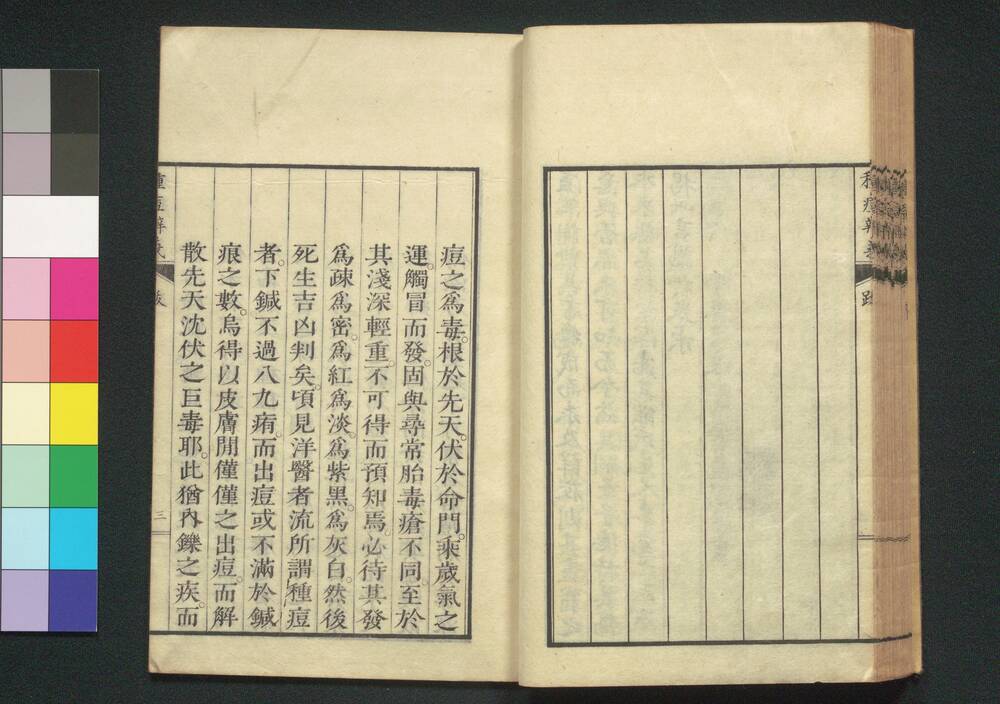 種痘辨義
跋
痘之爲毒。根於先天。伏於命門。乘歲氣之
運。觸冒而發。固與尋常胎毒瘡不同。至於
其淺深輕重。不可得而預知焉。必待其發
爲疎爲密。爲紅爲淡。爲紫黑。爲灰白。然後
死生吉凶判矣。頃見洋醫者流所謂種痘
者。下鍼不過八九痏。而出痘或不滿於鍼
痕之數。烏得以皮膚閒僅僅之出痘。而解
散先天沈伏之巨毒耶。此猶內鑠之疾。而
種痘辨義
跋
三